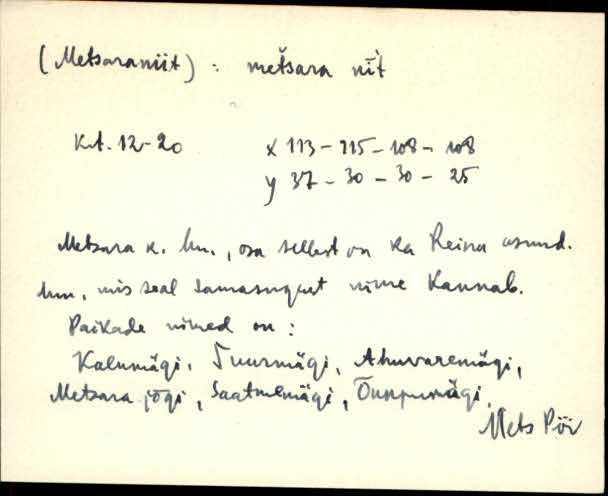 (Metsaraniit) : metšara nī̀t
Krt. 12-20 x 113 - 115 - 108 - 108
y 37 - 30 - 30 - 25
Metsara k. hm., osa sellest on ka Reinu asund.
hm, mis seal samasugust nime kannab.
Paikade nimed on :
Kalmumägi, Suurmägi, Ahuvaremägi,
Metsara jõgi, Saatmemägi, Õunpumägi.
Mets Pöi